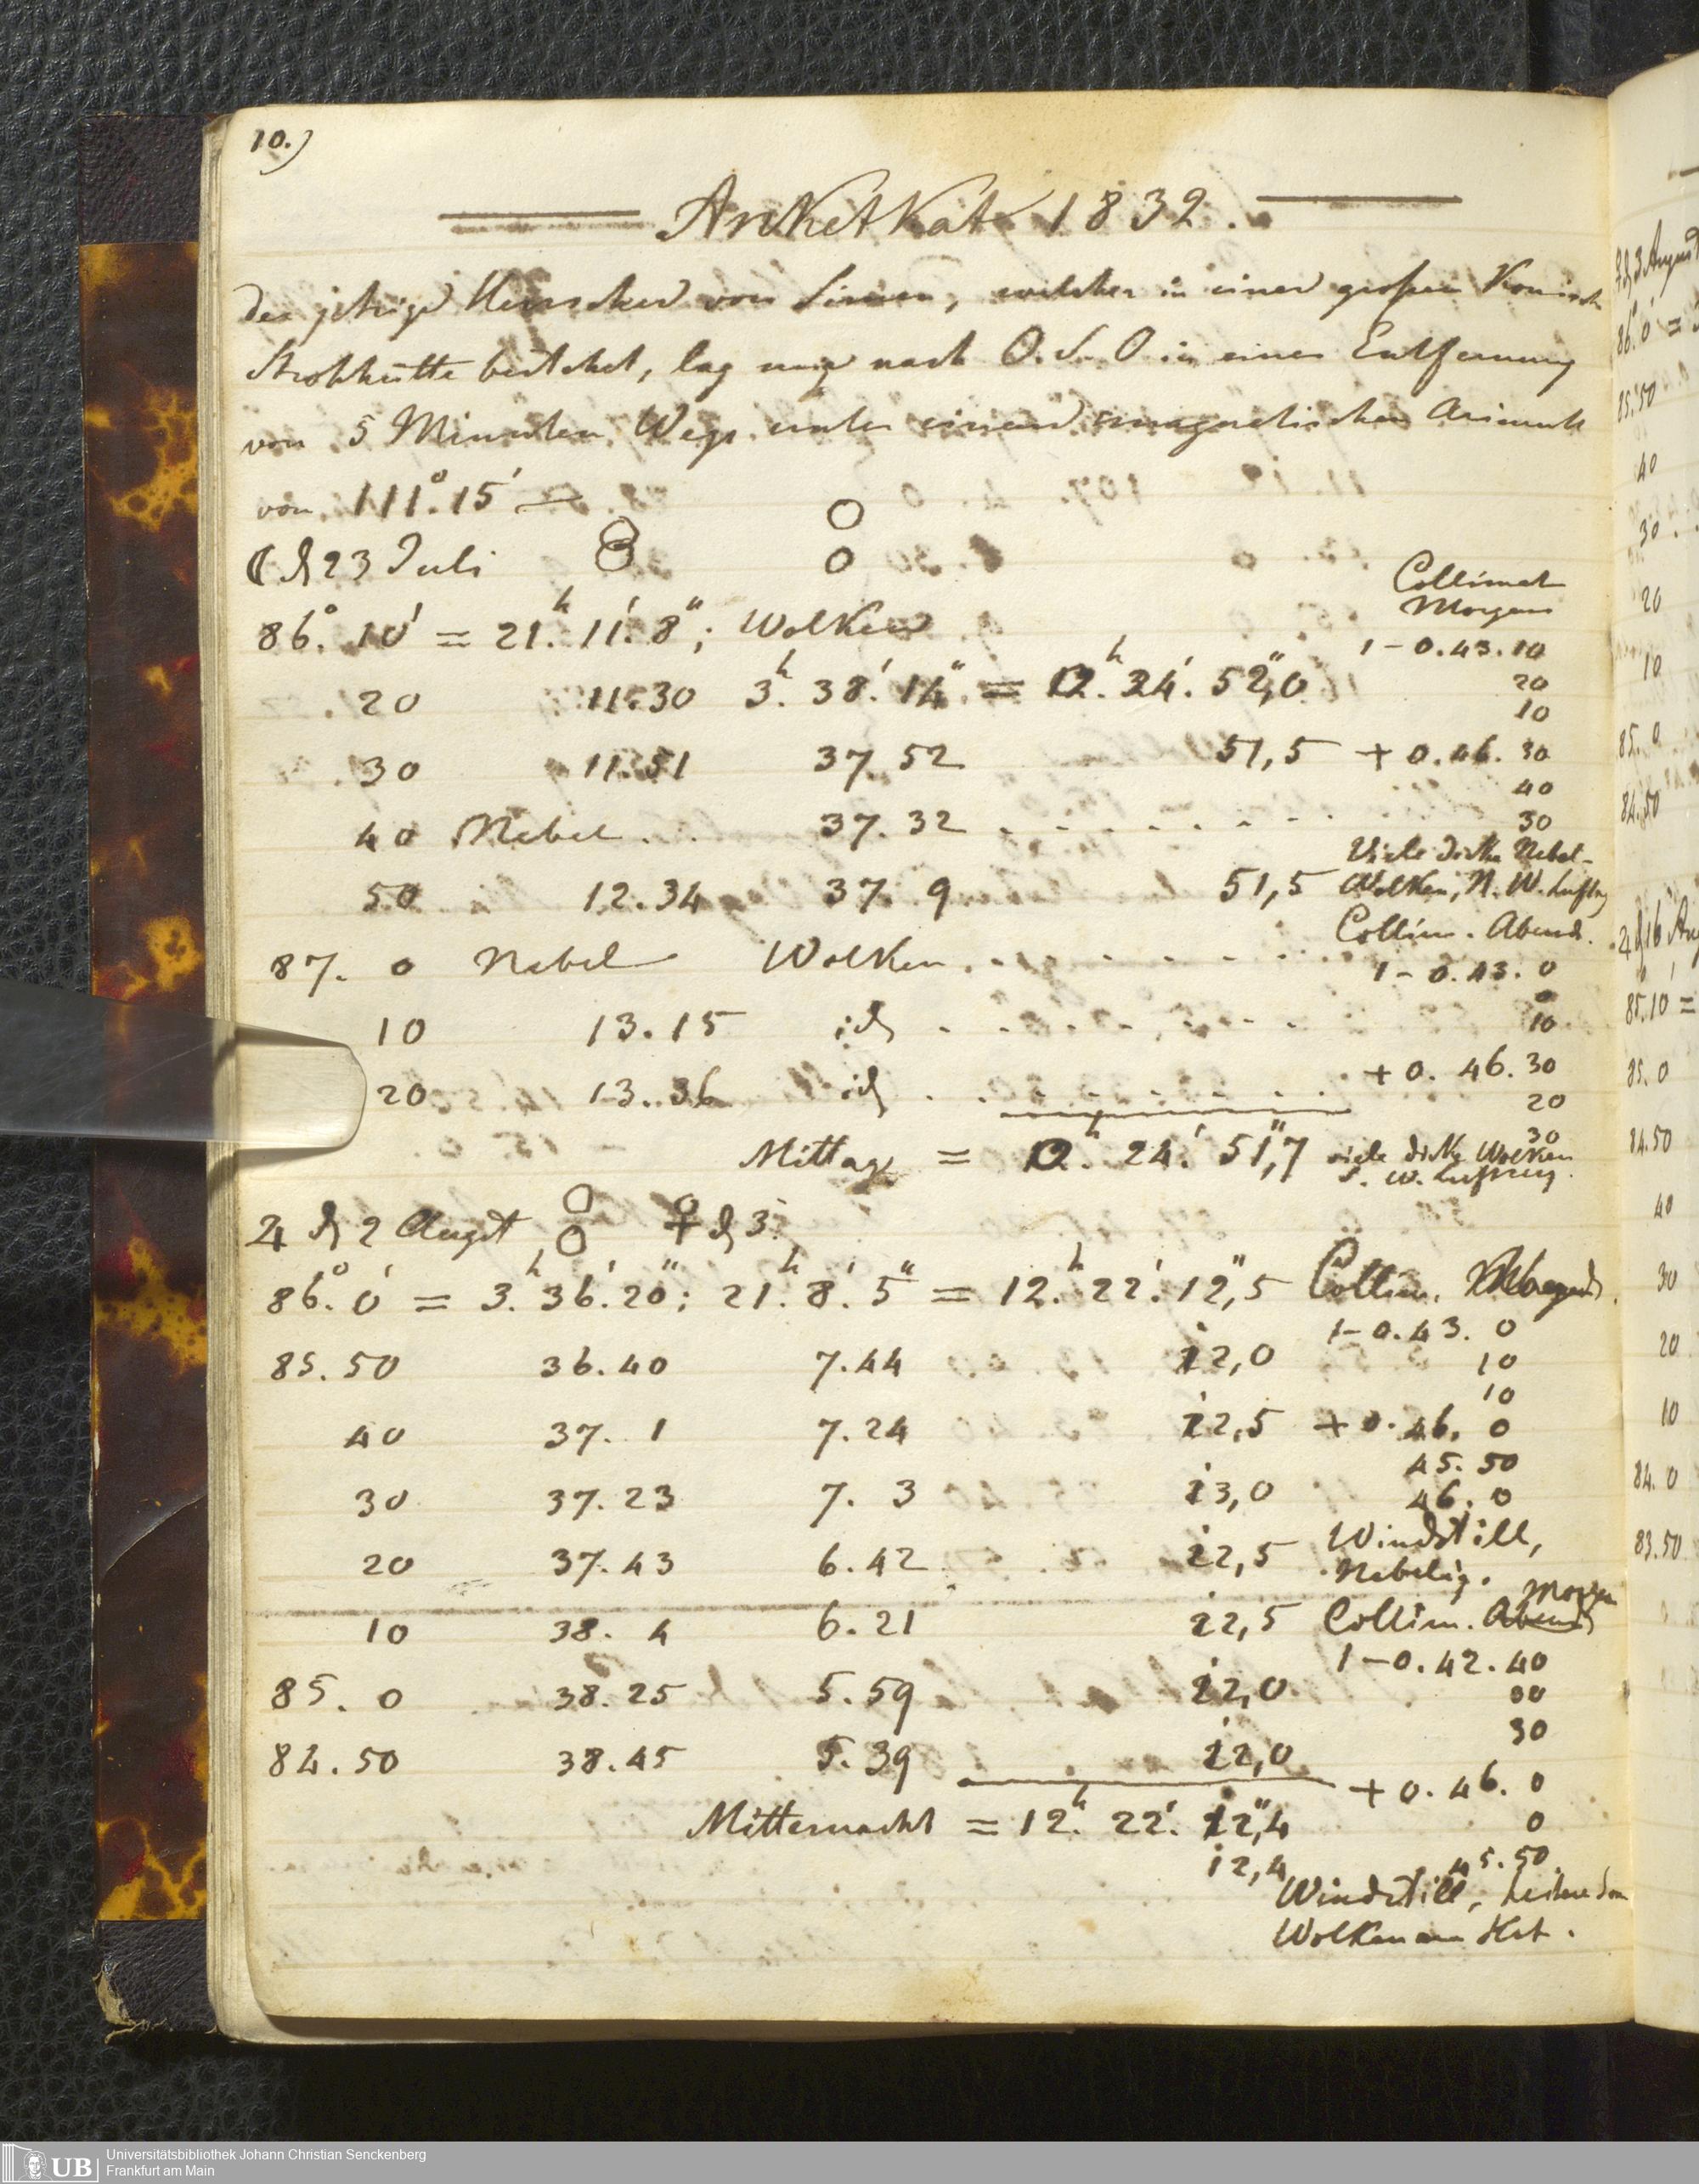 10.)
Anketkat 1832.
Der jetzige Herrscher von Simen, welcher in einer großen Konisch
Strohhütte bestehet, lag mir nach O.S.O in einer Entfernung
von 5 Minuten Wegs unter einem magnetischen Azimuth
von 111°.15' —
☾ d 23 Juli
Collimat
Morgens
86°. 10' = 21.h 11.' 8"; Wolken 1 - 0.43.10
20 11.30 3.h 38.' 14" = 12.h 24.' 52",0 20
10
30 11.51 37.52 51,5 + 0.46.30
40
40 Nebel . . 37.32 . . . . . . . 30
Viele dicke Nebel-
50 12.34 37. 9 51,5 Wolken, N.W.
Collim. Abends.
87. 0 Nebel Wolken . . . . . . . 1 - 0.43. 0
0
10 13.15 id . . . . . . . 10
20 13.36 id . . . . . . . + 0. 46.30
20
30
Mittag = 12.h 24.' 51",7 viele dicke Wolken
S. W.
♃ d 2 Augst ♀ d 3.
86.° 0' = 3.h 36.' 20"; 21.h 8.' 5" = 12.h 22.' 12",5 Collim.
1 - 0.43. 0
85.50 36.40 7.44 12,0 10
10
40 37. 1 7.24 12,5 + 0. 46. 0
45.50
30 37.23 7. 3 13,0 46. 0
Windstill,
20 37.43 6.42 12,5 Nebelig.
Morgen
10 38. 4 6.21 12,5 Collim. Abends
1 - 0.42.40
85. 0 38.25 5.59 12,0
30
84.50 38.45 5.39 12,0
+ 0.46. 0
Mitternacht = 12.h 22.' 12",4 0
12,4 45.50
Windstill, heitere
Wolken am Hrt.
♀ d 3 August
86.° 0' =
85.50
40
30
20
10
85. 0
84.50
85.10 =
85. 0
84.50
40
30
20
10
84. 0
83.50
UB
Universitätsbibliothek Johann Christian Senckenberg
Frankfurt am Main